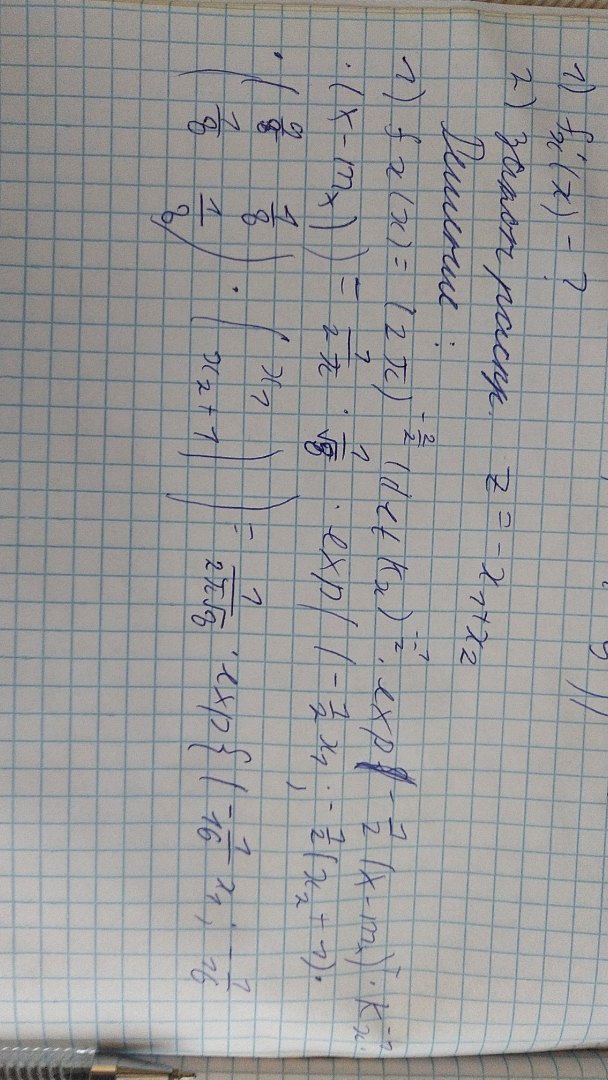 1) fx(x) - ?
2) Закон распр. z = -x₁+x₂
Решение:
1) fx(x) = (2π)^(-2/2) (det Kx)^(-1/2) · exp{-1/2 (x-mx)ᵀ · Kx⁻¹ ·
· (x-mx)) = 1/2π · 1/√8 · exp( (-1/2 x₁ ; -1/2 (x₂+1) ·
· (9/8 1/8 1/8 1/8) · (x₁ x₂+1) ) = 1/2π√8 · exp{ (-1/16 x₁ ; -1/16